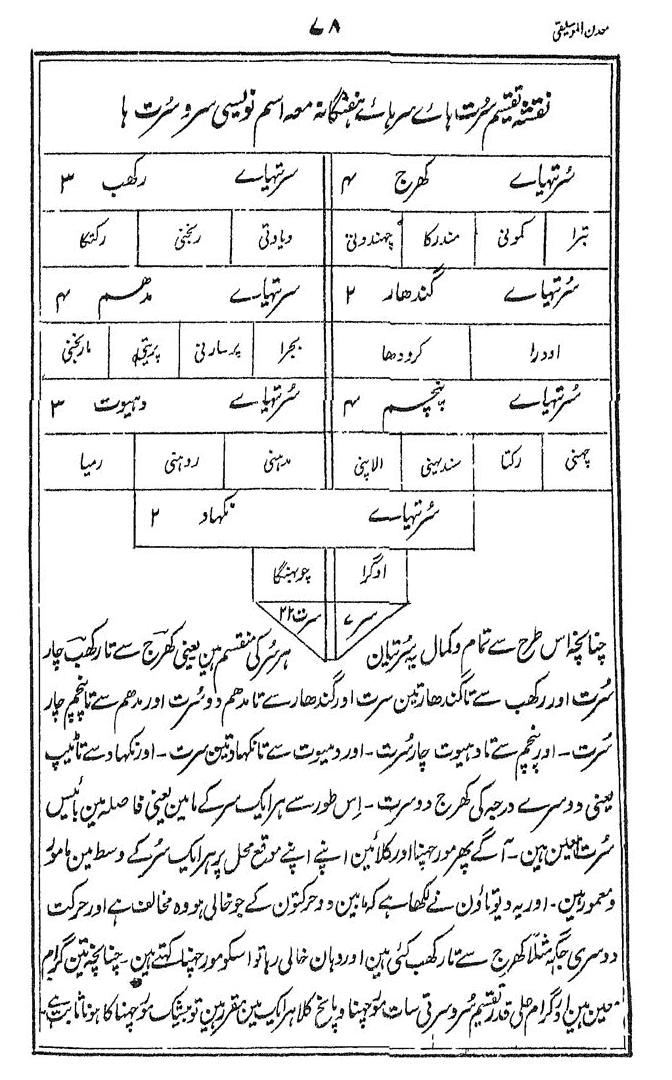 معدن الموسیقی
۷۸
نقشہ تقسیم سُرت ہائے سرہائے ہفتگانہ معہ اسم نویسی سر و سُرت ہا
سُرتہیاے کھرج ۴
سرتہیاے رکھب ۳
تبرا کمونی مندرکا چہندونی
دیاوتی رنجنی رکتکا
سُرتہیاے گندھار ۲
سرتہیاے مدھم ۴
اودرا کرودھا
بجرا پرسارنی پریتی مارنجنی
سُرتہیاے پنچم ۴
سُرتہیاے دھیوت ۳
چہنی رکتا سندیپنی الاپنی
مدہنی روہنی رمیا
سُرتہیاے نکھاد ۲
اوگرا چوبہنکا
سر ۷ سرت ۲۲
چنانچہ اس طرح سے تمام و کمال یہ سُرتیان ہر سُر کی منقسم ہین یعنی کھرج سے تا رکھب چار
سُرت اور رکھب سے تا گندھار تین سرت اور گندھار سے تا مدھم دو سُرت اور مدھم سے تا پنچم چار
سُرت ۔ اور پنچم سے تا دہیوت چار سُرت ۔ اور دہیوت سے تا نکھاد تین سرت ۔ اور نکھاد سے تا ٹیپ
یعنی دوسرے درجہ کی کھرج دو سرت ۔ اِس طور سے ہر ایک سر کے مابین یعنی فاصلہ مین بائیس
سُرت تعین ہین ۔ آگے پھر مورچہنا اور کلائین اپنے اپنے موقع محل پر ہر ایک سُر کے وسط مین مامور
و معمور ہین ۔ اور یہ دیوتاؤن نے لکھا ہے کہ مابین دو حرکتون کے جو خالی ہو وہ مخالف ہے اور حرکت
دوسری جگہ مثلاً کھرج سے تا رکھب کئی ہین اور دہان خالی رہا تو اسکو مورچہنا کہتے ہین ۔ چنانچہ تین گرام
معین ہین اور گرام علی قدر تقسیم سُر و سرتی سات مورچہنا و پانچ کلا ہر ایک مین مقرر ہین تو بیشک مورچہنا کا ہونا ثابت ہے ۔